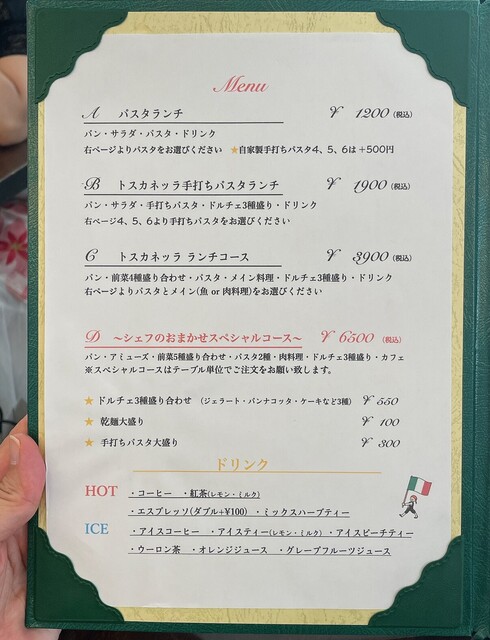 Menu
A パスタランチ ¥ 1200 (税込)
パン・サラダ・パスタ・ドリンク
右ページよりパスタをお選びください ★自家製手打ちパスタ4、5、6は+500円
B トスカネッラ手打ちパスタランチ ¥ 1900 (税込)
パン・サラダ・手打ちパスタ・ドルチェ3種盛り・ドリンク
右ページ4、5、6より手打ちパスタをお選びください
C トスカネッラ ランチコース ¥ 3900 (税込)
パン・前菜4種盛り合わせ・パスタ・メイン料理・ドルチェ3種盛り・ドリンク
右ページよりパスタとメイン(魚 or 肉料理)をお選びください
D ～シェフのおまかせスペシャルコース～ ¥ 6500 (税込)
パン・アミューズ・前菜5種盛り合わせ・パスタ2種・肉料理・ドルチェ3種盛り・カフェ
※スペシャルコースはテーブル単位でご注文をお願い致します。
★ ドルチェ3種盛り合わせ （ジェラート・パンナコッタ・ケーキなど3種） ¥ 550
★ 乾麺大盛り ¥ 100
★ 手打ちパスタ大盛り ¥ 300
ドリンク
HOT ・コーヒー ・紅茶(レモン・ミルク)
・エスプレッソ(ダブル+¥100) ・ミックスハーブティー
ICE ・アイスコーヒー ・アイスティー(レモン・ミルク) ・アイスピーチティー
・ウーロン茶 ・オレンジジュース ・グレープフルーツジュース